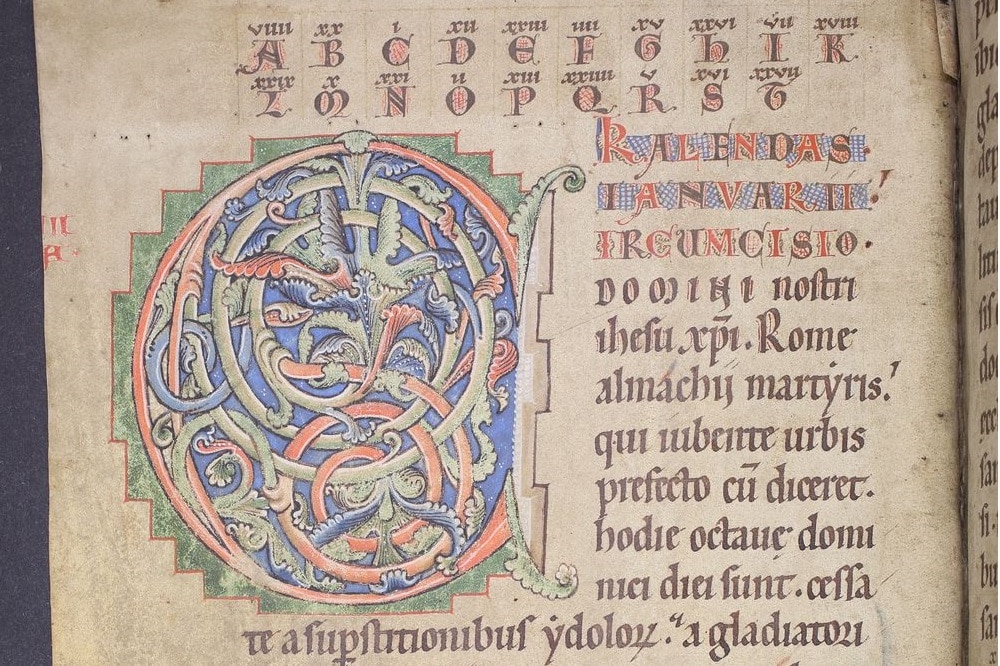 viiii xx i xii xxiii iiii xv xxvi vii xviii
A B C D E F G h I K
xxix x xxi ii xiii xxiiii v xvi xxvii
L M N O P Q R S T
KALENDAS
IANVARII
IRCUMCISIO
DOMINI nostri
ihesu xp̄i. Rome
almachij martẏris.
qui iubente urbis
prefecto cū diceret.
hodie octauę domi
nici diei sunt. cessa
te a sup̱stitionibus ẏdolorꝝ. a gladiatori